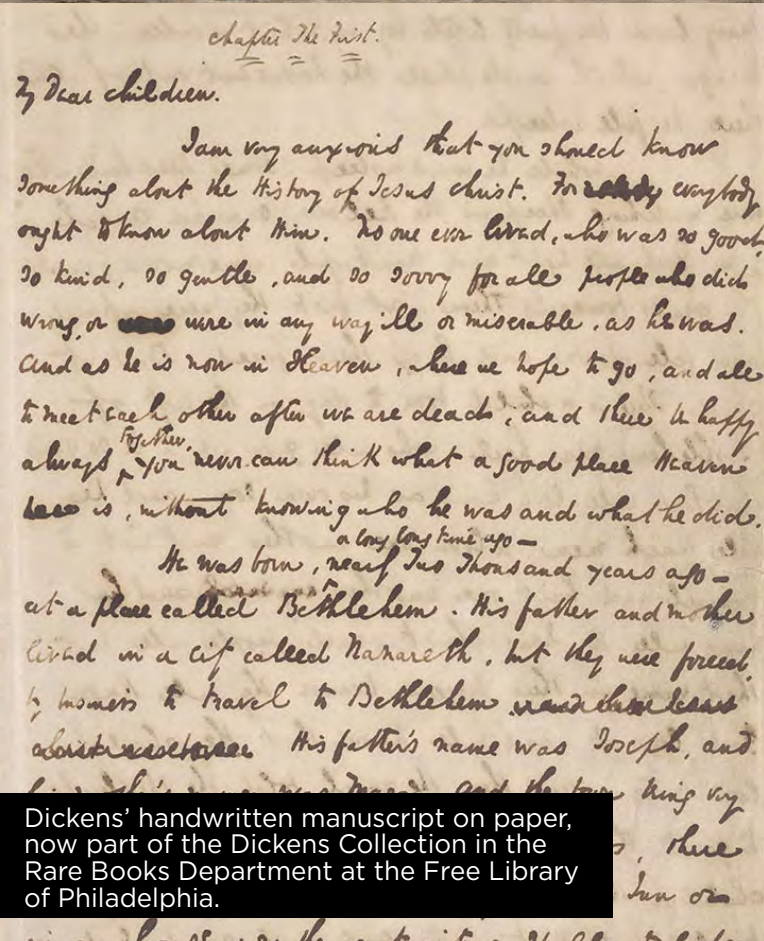 Chapter The First.
My Dear children.
I am very anxious that you should know
something about the History of Jesus Christ. For everybody
ought to know about Him. No one ever lived, who was so good,
so kind, so gentle, and so sorry for all people who did
wrong, or were in any way ill or miserable, as he was.
And as he is now in Heaven, where we hope to go, and all
to meet each other after we are dead, and there be happy
together,
always you never can think what a good place Heaven
is, without knowing who he was and what he did.
a long long time ago —
He was born, nearly Two Thousand years ago —
at a place called Bethlehem. His father and mother
lived in a city called Nazareth, but they were forced,
by business to travel to Bethlehem
His father's name was Joseph, and
was Mary. And the town being very
, there
Inn or
Dickens' handwritten manuscript on paper,
now part of the Dickens Collection in the
Rare Books Department at the Free Library
of Philadelphia.